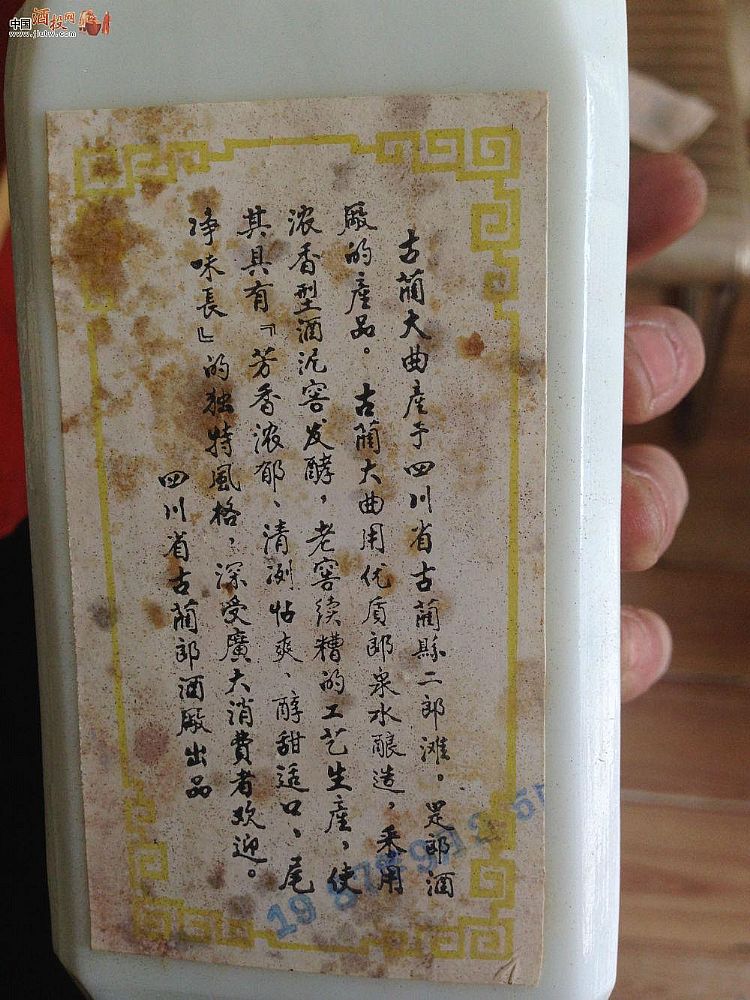 中国酒投网
www.jiutw.com
古蔺大曲產于四川省古蔺縣二郎滩。是郎酒
厰的產品。古蔺大曲用优质郎泉水酿造，采用
浓香型酒泥窖发酵，老窖续糟的工艺生產，使
其具有『芳香浓郁、清洌怗爽、醇甜适口、尾
净味長』的独特風格，深受廣大消費者欢迎。
四川省古蔺郎酒厰出品